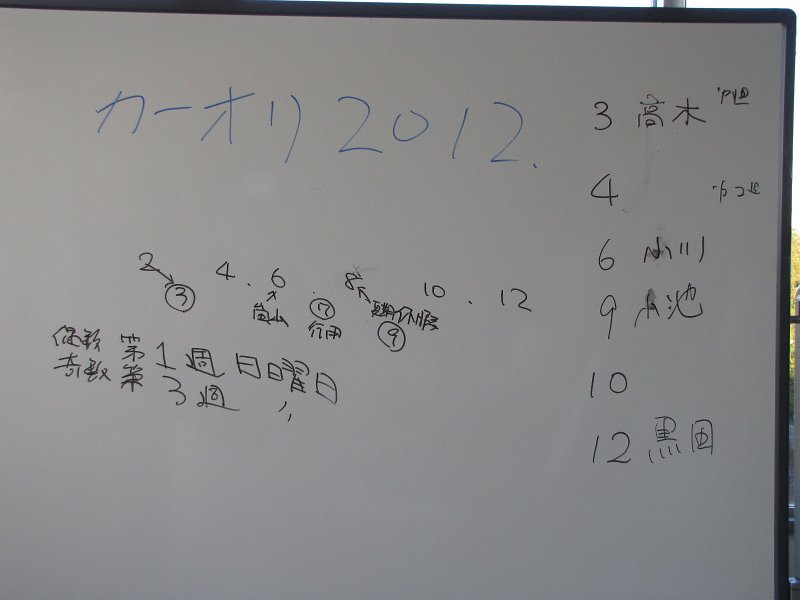 カーオリ2012.
2 4 . 6 . 8 10 . 12
③ 嵐山 ⑦ 夏期休暇
行田 ⑨
偶数 第1週 日曜日
奇数 第3週 〃
3 高木
4
6 小川
9 小池
10
12 黒田